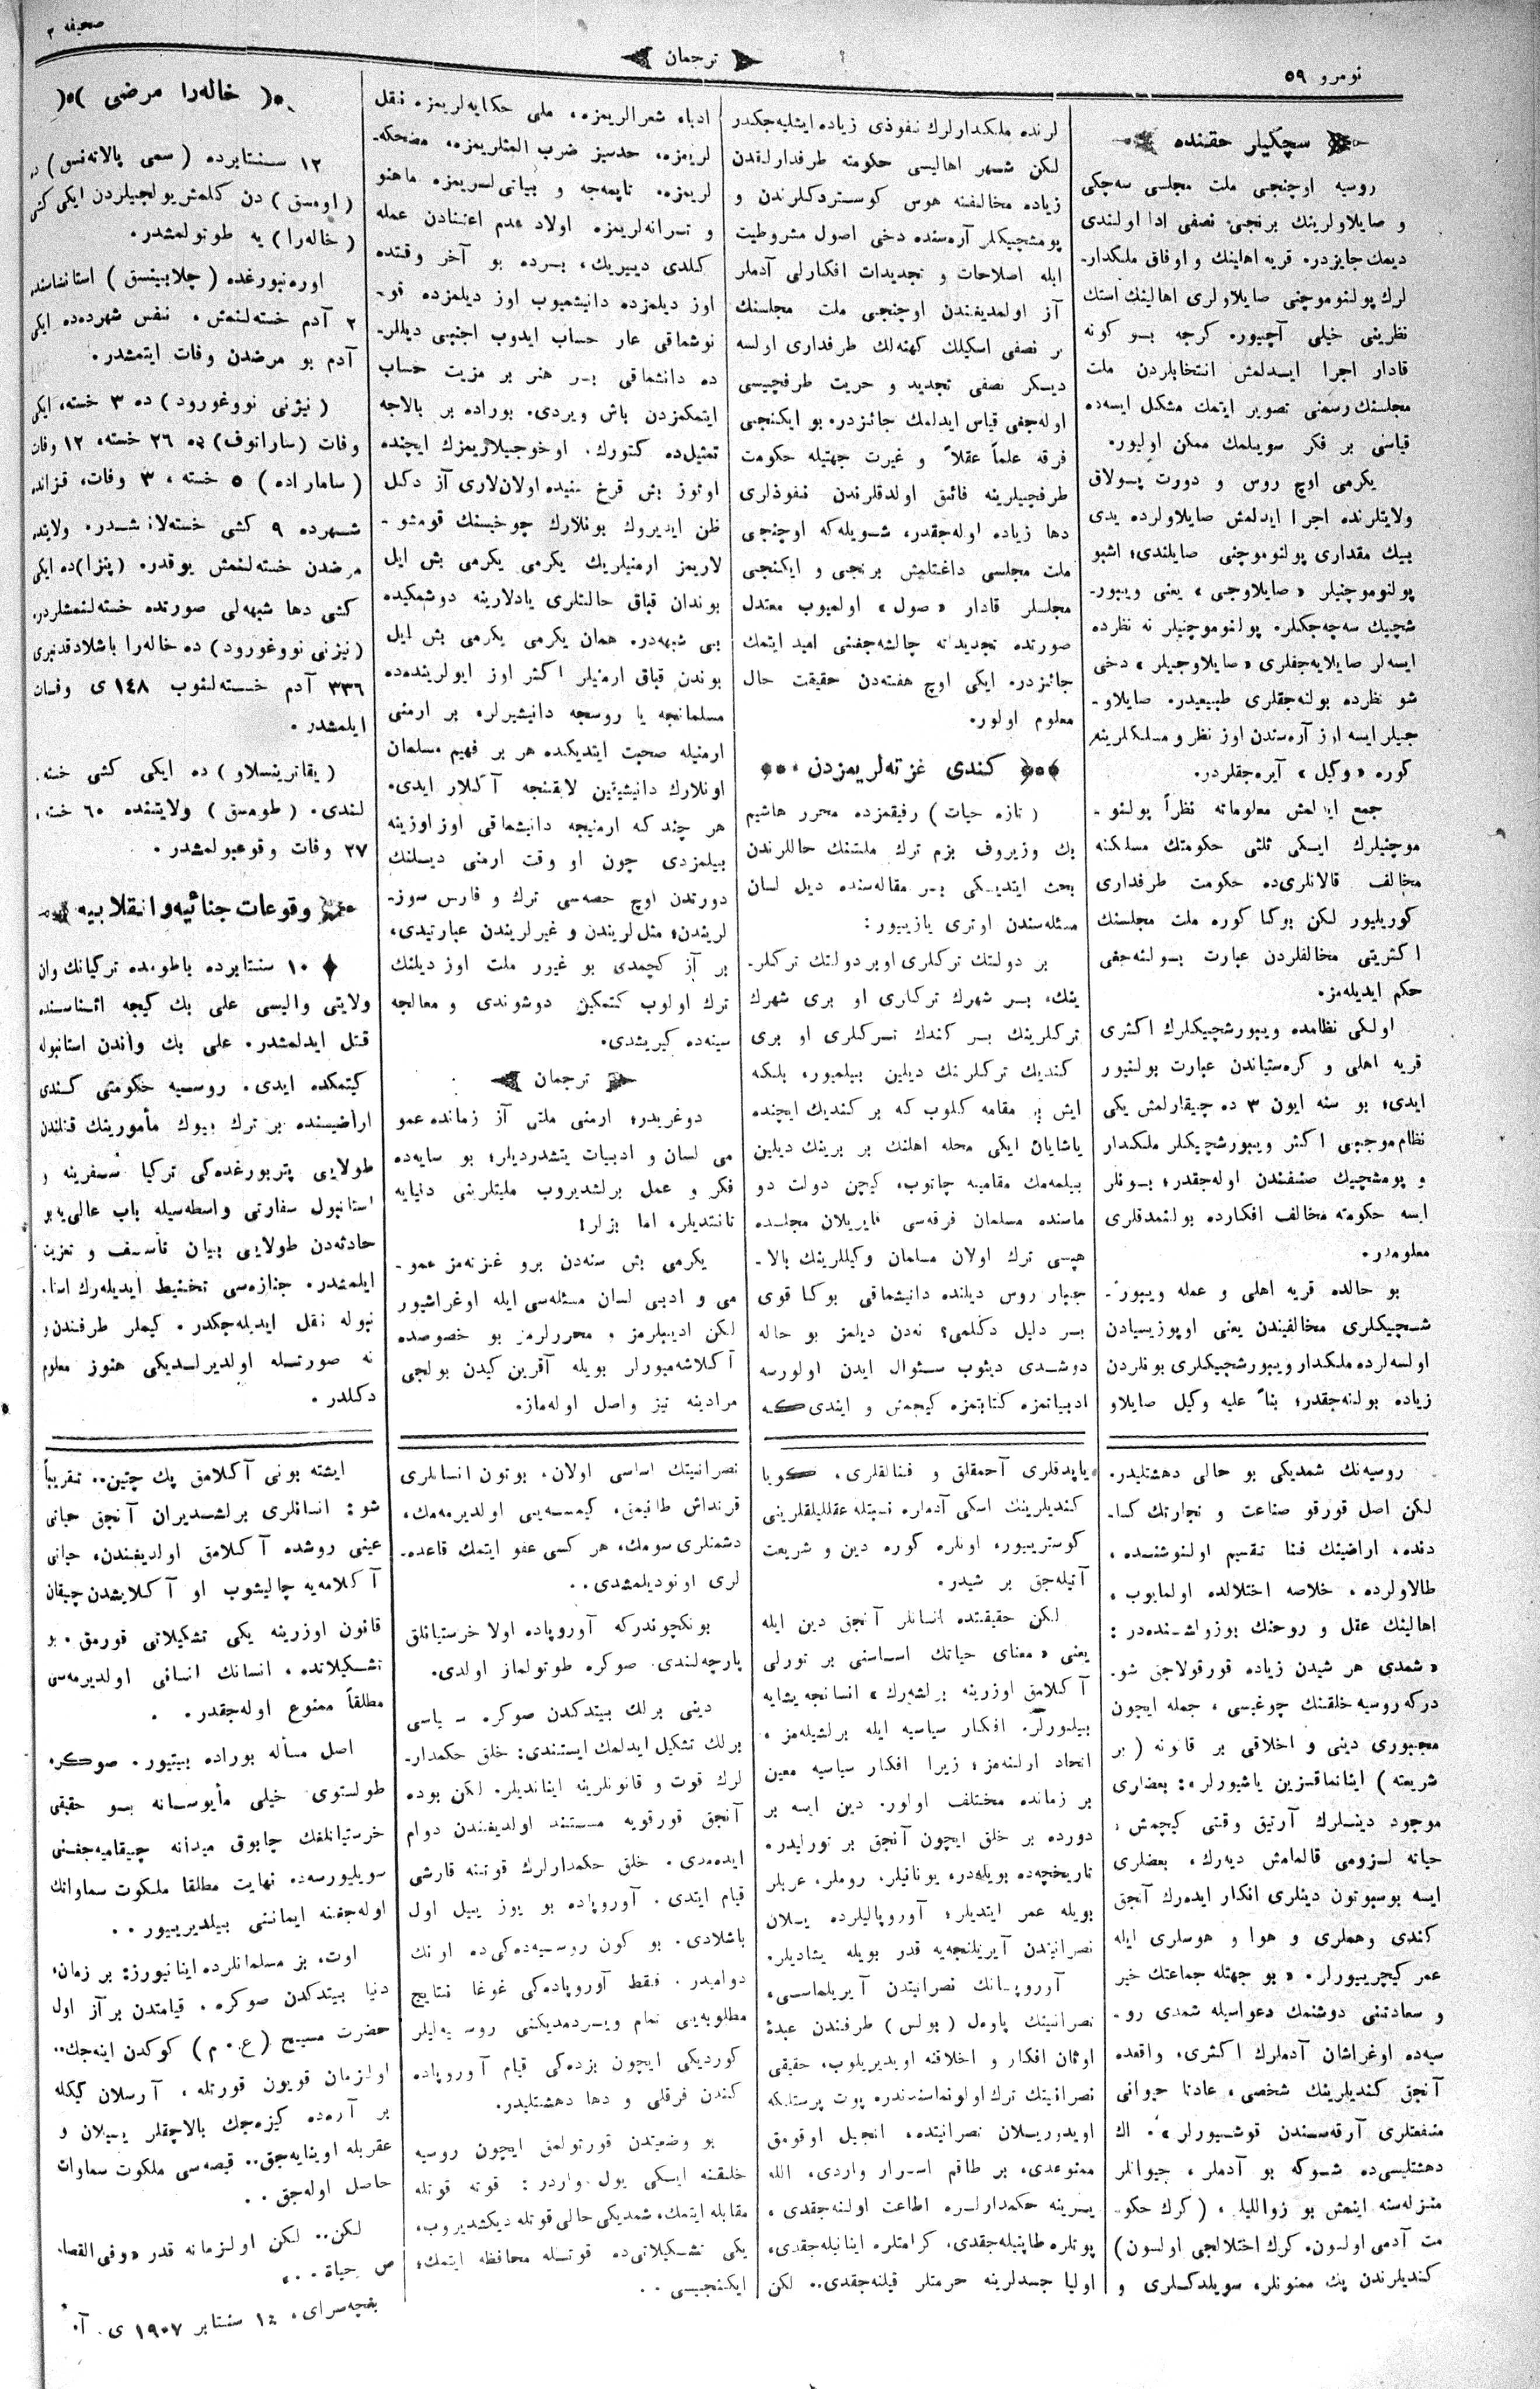 نومرو ٥٩
ترجمان
صحیفه ٢
سچكيلر حقنده
روسیه اوچنجی ملت مجلسی سه‌چكی
و صايلاولرينك برنجی نصفی ادا اولندی
ديمك جايزدر. قريه اهلينك و اوفاق ملكدار-
لرك پولنوموچنی صايلاولری اهالينك استك
نظرينی خیلی آچيور. كرچه بو كونه
قادار اجرا ايدلمش انتخابلردن ملت
مجلسنك رسمنی تصوير ايتمك مشكل ايسه‌ده
قياسی بر فكر سويلمك ممكن اوليور.
يكرمی اوچ روس و دورت پولاق
ولايتلرنده اجرا ايدلمش صايلاولرده يدی
بيك مقداری پولنوموچنی صايلندی؛ اشبو
پولنوموچنيلر «صايلاوجی» يعنی ويبور-
شچيك سه‌چه‌جكلر. پولنوموچنيلر نه نظرده
ايسه‌لر صايلايه‌جقلری «صايلاوجيلر» دخی
شو نظرده بولنه‌جقلری طبيعيدر. صايلاو-
جيلر ايسه اوز آره‌سندن اوز نظر و مسلكلرينه
كوره «وكيل» آيره‌جقلردر.
جمع ايدلمش معلوماته نظراً پولنو-
موچنيلرك ايكی ثلثی حكومتك مسلكنه
مخالف قالانلری‌ده حكومت طرفداری
كوريليور لكن بوكا كوره ملت مجلسنك
اكثريتی مخالفلردن عبارت بولنه‌جغی
حكم ايديله‌مز.
اولكی نظامده ويبورشچيكلرك اكثری
قريه اهلی و كره‌ستياندن عبارت بولنيور
ايدی؛ بو سنه ايون ٣ ده چيقارلمش يكی
نظام موجبی اكثر ويبورشچيكلر ملكدار
و پومشچيك صنفندن اوله‌جقدر؛ بونلر
ايسه حكومته مخالف افكارده بولنمدقلری
معلومدر.
بو حالده قريه اهلی و عمله ويبور-
شچيكلری مخالفيندن يعنی اوپوزيسيادن
اولسه‌لرده ملكدار ويبورشچيكلری بونلردن
زياده بولنه‌جقدر؛ بناً عليه وكيل صايلاو
لرنده ملكدارلرك نفوذی زياده ايشليه‌جكدر
لكن شهر اهاليسی حكومته طرفدارلقدن
زياده مخالفته هوس كوستردكلرندن و
پومشچيكلر آره‌سنده دخی اصول مشروطيت
ايله اصلاحات و تجديدات افكارلی آدملر
آز اولمديغندن اوچنجی ملت مجلسنك
بر نصفی اسكيلك كهنه‌لك طرفداری اولسه
ديكر نصفی تجديد و حريت طرفچيسی
اوله‌جغی قياس ايدلمك جائزدر. بو ايكنجی
فرقه علماً عقلاً و غيرت جهتيله حكومت
طرفچيلرينه فائق اولدقلرندن نفوذلری
دها زياده اوله‌جقدر، شويله‌كه اوچنجی
ملت مجلسی داغتلمش برنجی و ايكنجی
مجلسلر قادار «صول» اولميوب معتدل
صورتده تجديداته چالشه‌جغنی اميد ايتمك
جائزدر. ايكی اوچ هفته‌دن حقيقت حال
معلوم اولور.
كندی غزته‌لريمزدن
(تازه حيات) رفيقمزده محرر هاشم
بك وزيروف بزم ترك ملتنك حاللرندن
بحث ايتديكی بر مقاله‌سنده ديل لسان
مسئله‌سندن اوتری يازييور:
بر دولتك تركلری اوبر دولتك تركلر-
ينك، بر شهرك تركلری او بری شهرك
تركلرينك بر كندك تركلری او بری
كنديك تركلرنك ديلين بيلميور، بلكه
ايش بر مقامه كلوب كه بر كنديك ايچنده
ياشايان ايكی محله اهلنك بر برينك ديلين
بيلمه‌مك مقامينه چاتوب، كيچن دولت دو
ماسنده مسلمان فرقه‌سی قايريلان مجلسده
هپسی ترك اولان مسلمان وكيللرينك بالا-
جبار روس ديلنده دانيشماقی بوكا قوی
بر دليل دكلمی؟ نه‌دن ديلمز بو حاله
دوشدی ديئوب سئوال ايدن اولورسه
ادبياتمزه كتابتمزه كيچمش و ايندی كه
ادباء شعرالريمزه، ملی حكايه‌لريمزه نقل
لريمزه، حدسيز ضرب المثلريمزه، مضحكه-
لريمزه، تاپمه‌جه و بياتی‌لريمزه ماهنو
و ترانه‌لريمزه اولاد عدم اعتنادن عمله
كلدی ديريك، برده بو آخر وقتده
اوز ديلمزده دانيشميوب اوز ديلمزده قو-
نوشماقی عار حساب ايدوب اجنبی ديللر-
ده دانشماقی بر هنر بر مزيت حساب
ايتمكمزدن باش ويردی. بوراده بر بالاجه
تمثيل‌ده كتورك. اوخوجيلاريمزك ايچنده
اوتوز بش قرخ سنيده اولان‌لاری آز دكل
ظن ايديروك بونلارك چوخيسنك قومشو-
لاريمز ارمنيلريك يكرمی يكرمی بش ايل
بوندان قباق حالتلری يادلارينه دوشمكيده
بی شبهه‌در. همان يكرمی يكرمی بش ايل
بوندن قباق ارمنيلر اكثر اوز ايولرينده‌ده
مسلمانجه يا روسجه دانيشيرلر، بر ارمنی
ارمنيله صحبت ايتديكده هر بر فهيم مسلمان
اونلارك دانيشيقين لايقنجه آكلار ايدی.
هر چند كه ارمنيجه دانيشماقی اوز اوزينه
بيلمزدی چون او وقت ارمنی ديلنك
دورتدن اوچ حصه‌سی ترك و فارس سوز-
لريندن؛ مثل‌لريندن و غيرلريندن عبارتيدی،
بر آز كچمدی بو غيور ملت اوز ديلنك
ترك اولوب كتمكين دوشوندی و معالجه
سينه‌ده كيريشدی.
ترجمان
دوغريدر؛ ارمنی ملتی آز زمانده عمو
می لسان و ادبيات يتشدرديلر؛ بو سايه‌ده
فكر و عمل برلشديروب مليتلرينی دنيايه
تانتديلر، اما بزلر!
يكرمی بش سنه‌دن برو غزته‌مز عمو-
می و ادبی لسان مسئله‌سی ايله اوغراشيور
لكن اديبلرمز و محررلرمز بو خصوصده
آكلاشه‌ميورلر بويله آقرين كيدن بولجی
مرادينه تيز واصل اوله‌ماز.
خاله‌را مرضی
١٢ سنتابرده (سمی پالاتنسق) ده
(اومسق) دن كلمش يولجيلردن ايكی كشی
(خاله‌را) يه طوتولمشدر.
اوره‌نبورغده (چلابينسق) استانغاسنده
٢ آدم خسته‌لنمش. نفس شهرده‌ده ايكی
آدم بو مرضدن وفات ايتمشدر.
(نيژنی نووغورود) ده ٣ خسته، ايكی
وفات (ساراتوف) ده ٢٦ خسته، ١٢ وفات
(سامارا‌ده) ٥ خسته، ٣ وفات، قزانده
شهرده ٩ كشی خسته‌لانمشدر، ولايتده
مرضدن خسته‌لنمش يوقدر. (پنزا) ده ايكی
كشی دها شبهه‌لی صورتده خسته‌لنمشلردر.
(نيژنی نووغورود) ده خاله‌را باشلادقدنبری
٣٣٦ آدم خسته‌لنوب ١٤٨ ی وفات
ايلمشدر.
(يقاترينسلاو) ده ايكی كشی خسته
لندی. (طومسق) ولايتنده ٦٠ خسته،
٢٧ وفات وقوعبولمشدر.
وقوعات جنائيه و انقلابيه
١٠ سنتابرده باطومده تركيانك وان
ولايتی واليسی علی بك كيجه اثناسنده
قتل ايدلمشدر. علی بك واندن استانبوله
كيتمكده ايدی. روسيه حكومتی كندی
اراضيسنده بر ترك بيوك مأمورينك قتلندن
طولايی پتربورغده‌كی تركيا سفرينه و
استانبول سفارتی واسطه‌سيله باب عالی‌يه بو
حادثه‌دن طولايی بيان تأسف و تعزيت
ايلمشدر. جنازه‌سی تخنيط ايديله‌رك استا-
نبوله نقل ايديله‌جكدر. كيملر طرفندن و
نه صورتله اولديرلديكی هنوز معلوم
دكلدر.
روسيه‌نك شمديكی بو حالی دهشتليدر.
لكن اصل قورقو صناعت و تجارتك كسا-
دنده، اراضينك فنا تقسيم اولنوشنده،
طالاولرده. خلاصه اختلالده اولمايوب،
اهالينك عقل و روحنك بوزولشنده‌در:
«شمدی هر شيدن زياده قورقولاجق شو-
دركه روسيه خلقنك چوغيسی، جمله ايچون
مجبوری دينی و اخلاقی بر قانونه (بر
شريعته) اينانماقسزين ياشيورلر»: بعضلری
موجود دينلرك آرتيق وقتی كيچمش،
حياته لزومی قالمامش ديه‌رك، بعضلری
ايسه بوسبوتون دينلری انكار ايده‌رك آنجق
كندی وهملری و هوا و هوسلری ايله
عمر كيچرييورلر. «بو جهتله جماعتك خير
و سعادتنی دوشنمك دعواسيله شمدی رو-
سيه‌ده اوغراشان آدملرك اكثری، واقعده
آنجق كنديلرينك شخصی، عادتا حيوانی
منفعتلری آرقه‌سندن قوشيورلر». اك
دهشتليسی‌ده شوكه بو آدملر، حيوانلر
منزله‌سنه اينمش بو زواللیلر، (كرك حكو-
مت آدمی اولسون، كرك اختلالجی اولسون)
كنديلرندن پك ممنونلر، سويلدكلری و
ياپدقلری آحمقلق و فنالقلری، كويا
كنديلرينك اسكی آدملره نسبتله عقلليلقلرينی
كوستريبور، اونلره كوره دين و شريعت
آتيله‌جق بر شيدر.
لكن حقيقتده انسانلر آنجق دين ايله
يعنی «معنای حياتك اساسنی بر تورلی
آكلامق اوزرينه برلشه‌رك» انسانجه يشايه
بيلورلر. افكار سياسيه ايله برلشيله‌مز،
اتحاد اولنه‌مز؛ زيرا افكار سياسيه معين
بر زمانده مختلف اولور. دين ايسه بر
دورده بر خلق ايچون آنجق بر تورليدر.
تاريخچه‌ده بويله‌در، يونانيلر، روملر، عربلر
بويله عمر ايتديلر؛ آوروپاليلرده يسلان
نصرانيتدن آيريلنجه‌يه قدر بويله يشاديلر.
آوروپانك نصرانيتدن آيريلماسی،
نصرانيتك پاول (بولس) طرفندن عبدهٔ
اوثان افكار و اخلاقنه اويديريلوب، حقيقی
نصرانيتك ترك اولونماسنددر. پوت پرستلكه
اويدوريلان نصرانيتده، انجيل اوقومق
ممنوعدی، بر طاقم اسرار واردی، الله
يرينه حكمدارلره اطاعت اولنه‌جقدی،
پوتلره طاپنيله‌جقدی، كرامتلره اينانيله‌جقدی،
اوليا جسدلرينه حرمتلر قيلنه‌جقدی.. لكن
نصرانيتك اساسی اولان، بوتون انسانلری
قرنداش طانيمق، كيمسه‌يی اولديرمه‌مك،
دشمنلری سومك، هر كسی عفو ايتمك قاعده-
لری اونوديلمشدی..
بونكچوندركه آوروپاده اولا خرستيانلق
پارچه‌لندی، صوكره طوتولماز اولدی.
دينی برلك بيتدكدن صوكره سياسی
برلك تشكيل ايدلمك ايستندی: خلق حكمدار-
لرك قوت و قانونلرينه ايناندیلر. لكن بوده
آنجق قورقويه مستند اولديغندن دوام
ايده‌مدی. خلق حكمدارلرك قوتنه قارشی
قيام ايتدی. آوروپاده بو يوز ييل اول
باشلادی. بو كون روسيه‌ده‌كی‌ده اونك
دواميدر. فقط آوروپاده‌كی غوغا نتايج
مطلوبه‌يی تمام ويرمديكنی روسيه‌ليلر
كورديكی ايچون بزده‌كی قيام آوروپاده
كندن فرقلی و دها دهشتليدر.
بو وضعيتدن قورتولمق ايچون روسيه
خلقنه ايكی يول واردر: قوته قوتله
مقابله ايتمك، شمديكی حالی قوتله ديكشديروب،
يكی تشكيلاتی‌ده قوتله محافظه ايتمك؛
ايكنجيسی..
ايشته بونی آكلامق پك چتين.. تقريباً
شو: انسانلری برلشديران آنجق حياتی
عينی روشده آكلامق اولديغندن، حياتی
آكلامه‌يه چاليشوب او آكلايشدن چيقان
قانون اوزرينه يكی تشكيلاتی قورمق. بو
تشكيلاتده، انسانك انسانی اولديرمه‌سی
مطلقاً ممنوع اوله‌جقدر..
اصل مسأله بوراده بيتيور. صوكره
طولستوی خيلی مأيوسانه بو حقيقی
خرستيانلغك چابوق ميدانه چيقاميه‌جغنی
سويليورسه‌ده نهايت مطلقا ملكوت سماوانك
اوله‌جغنه ايماننی بيلديريبور..
اوت، بز مسلمانلرده اينانيورز: بر زمان،
دنيا بيتدكدن صوكره، قيامتدن بر آز اول
حضرت مسيح (ع.م) كوكدن اينه‌جك..
اولزمان قويون قورتله، آرسلان كيكله
بر آره‌ده كيزه‌جك بالاچقلر ييلان و
عقربله اوينايه‌جق.. قيصه‌سی ملكوت سماوات
حاصل اوله‌جق..
لكن.. لكن اولزمانه قدر «وفی القصا-
ص حياة..»
بغچه‌سرای، ١٤ سنتابر ١٩٠٧ ی. آ.